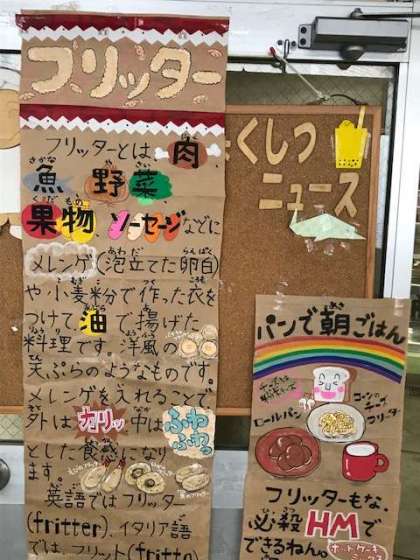 フリッター
フリッターとは、肉、
魚、野菜、
果物、ソーセージなどに
メレンゲ(泡立てた卵白)
や小麦粉で作った衣を
つけて油で揚げた
料理です。洋風の
天ぷらのようなものです。
メレンゲを入れることで、
外はカリッ中はふわ
ふわっ
とした食感になり
ます。
英語ではフリッター
(fritter)、イタリア語
では、フリット(fritto)
くしつ
ニュース
パンで朝ごはん
ロールパン
フリッターもな、
必殺HMで
できるねん。